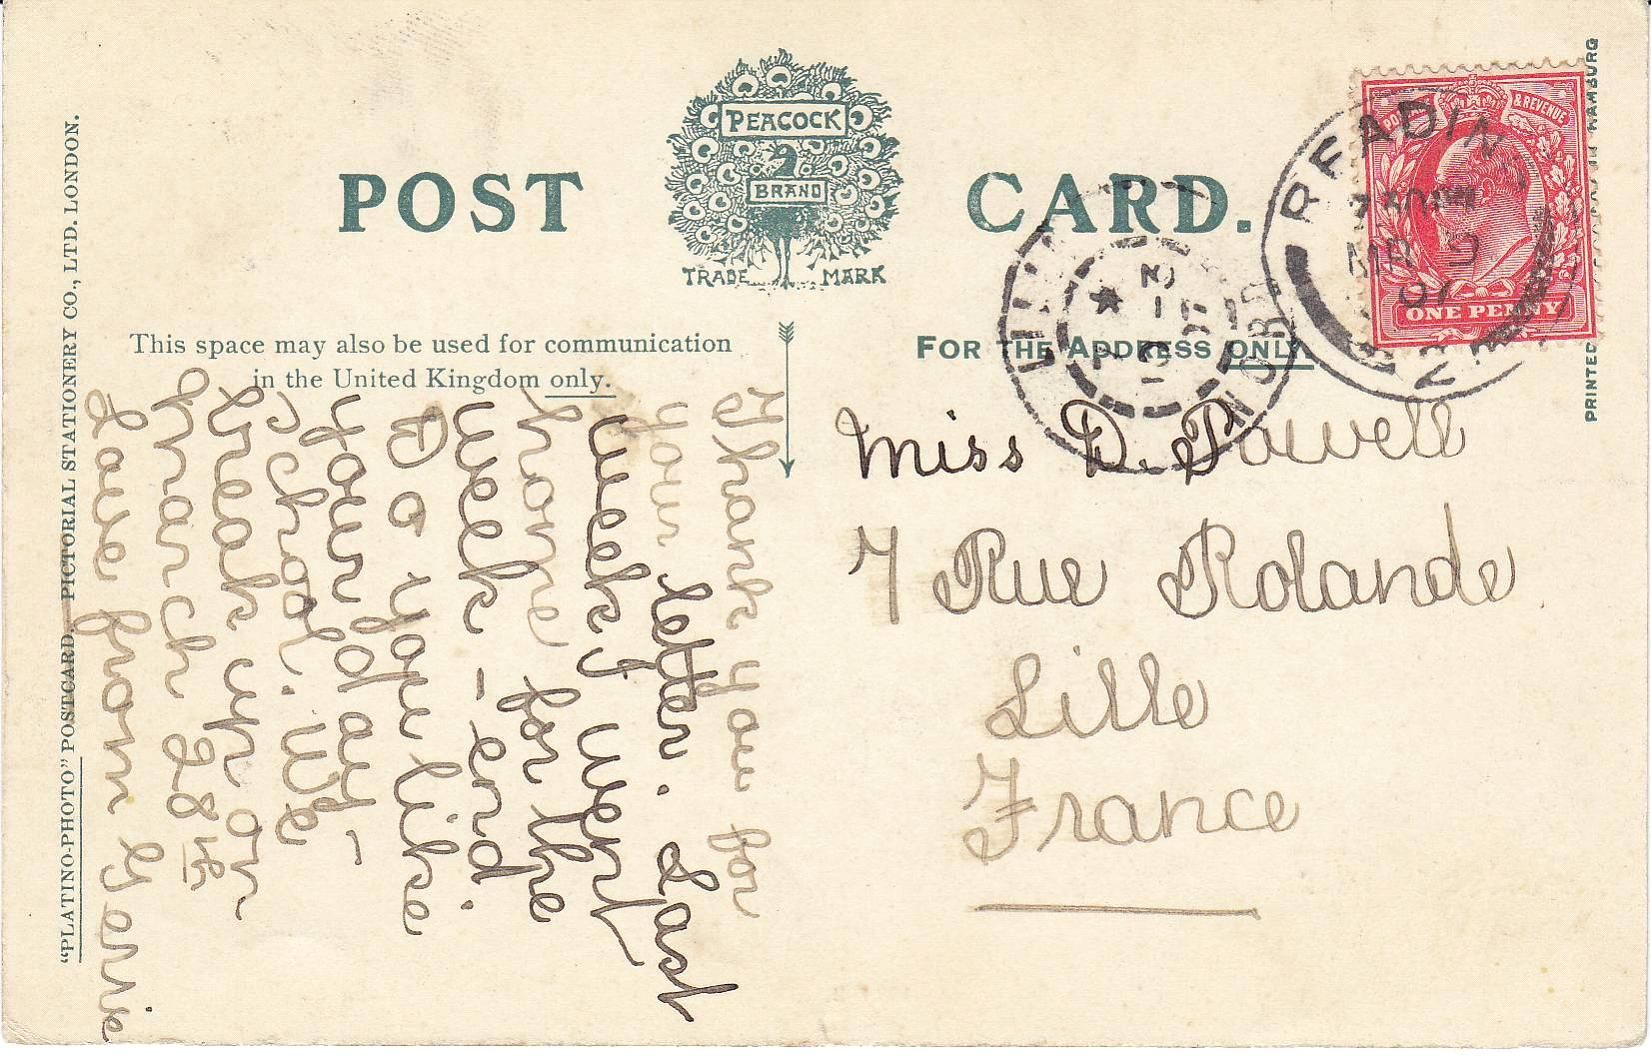 POST CARD.
PEACOCK
BRAND
TRADE MARK
This space may also be used for communication
in the United Kingdom only.
FOR THE ADDRESS ONLY.
"PLATINO-PHOTO" POSTCARD. PICTORIAL STATIONERY CO., LTD. LONDON.
PRINTED IN HAMBURG
& REVENUE
ONE PENNY
READING
MR 3
07
LILLE
NORD
Thank you for
your letter. Last
week I went
home for the
week-end.
Do you like
your day-
school. We
break up on
March 28th
Love from
Miss D. Powell
7 Rue Rolande
Lille
France